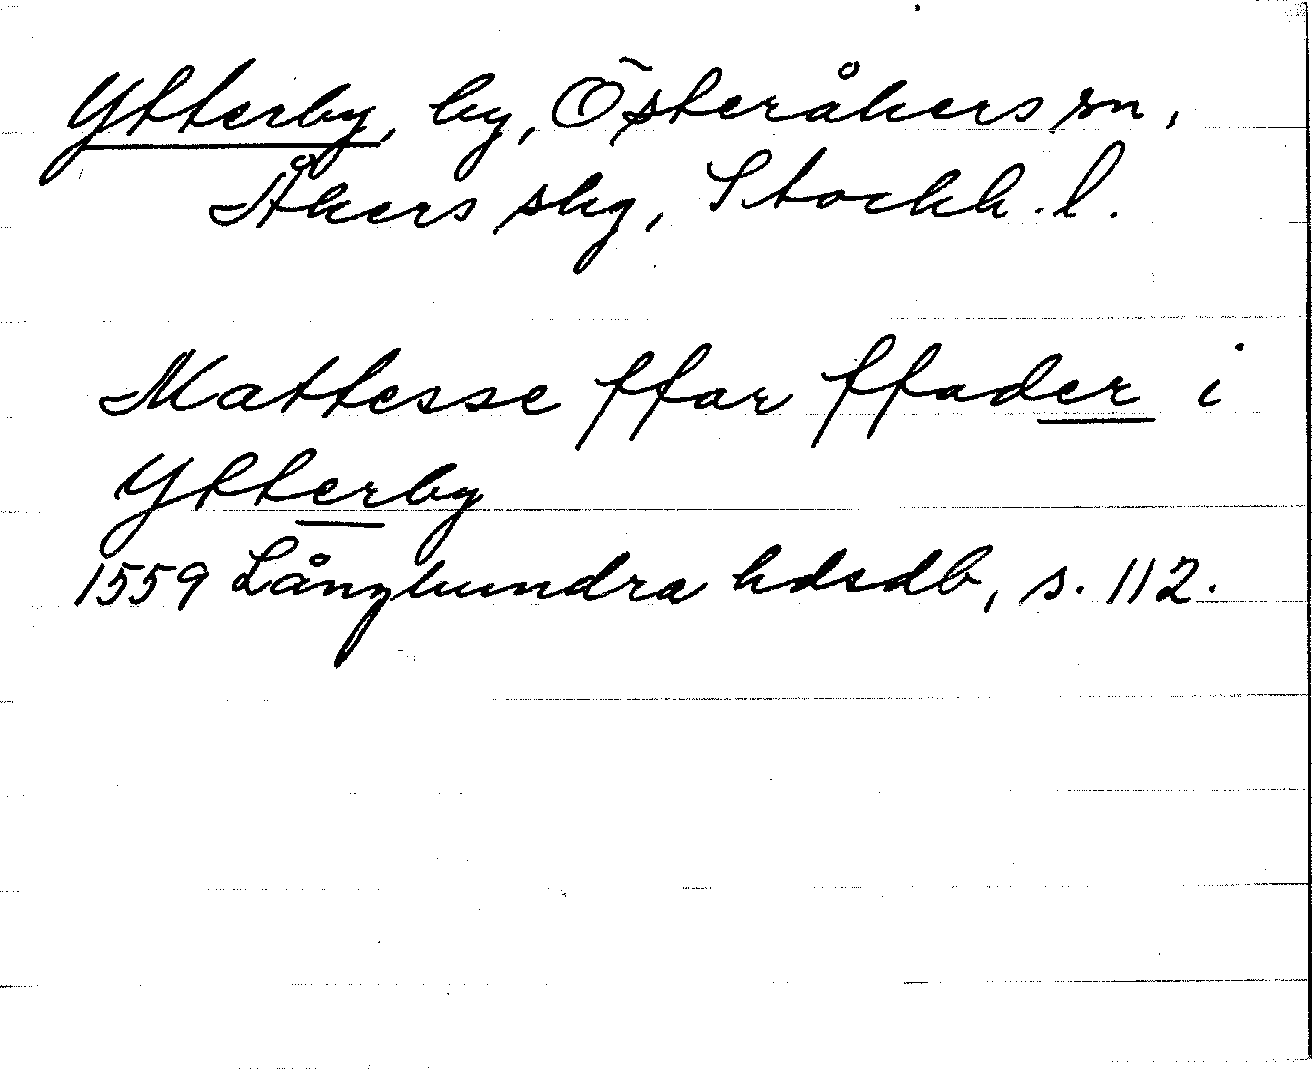 Ytterby, by, Österåkers sn,
Åkers skg, Stockh. l.
Mattesse ffar ffader i
Ytterby
1559 Långhundra hdsdb, s. 112.